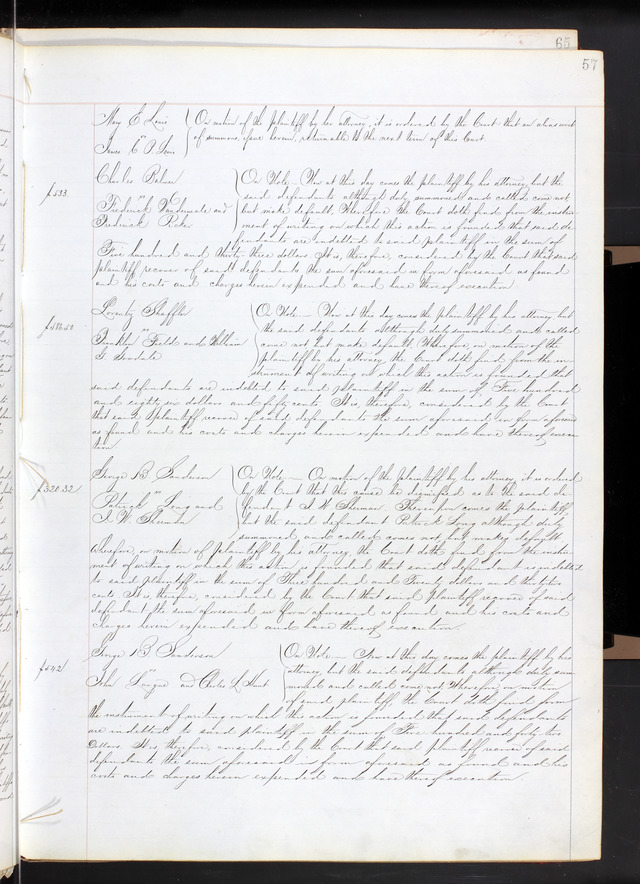 65
57
On motion of the plaintiff by his attorney, it is ordered by the Court that an alias writ
of summons issue herein, returnable to the next term of this Court
Charles
On Note — Now at this day comes the plaintiff by his attorney, but the
$533.
said defendants although duly summoned and called come not
Frederick and
but make default, Wherefore the Court doth find from the instru-
Frederick
ment of writing on which this action is founded that said de-
fendants are indebted to said plaintiff in the sum of
Five hundred and thirty three dollars It is, therefore, considered by the Court that said
plaintiff recover of said defendants the sum aforesaid in form aforesaid as found
and his costs and charges herein expended and have thereof execution
On Note — Now at this day comes the plaintiff by his attorney, but
the said defendants although duly summoned and called
Fields and William
come not but make default, Wherefore, on motion of the
G.
plaintiff by his attorney the Court doth find from the in-
strument of writing on which the action is founded that
said defendants are indebted to said plaintiff in the sum of Five hundred
and eighty six dollars and fifty cents It is, therefore, considered by the Court
that said plaintiff recover of said defendants the sum aforesaid in form aforesaid
as found and his costs and charges herein expended and have thereof execu-
tion
George B Sanderson
On Note — On motion of the Plaintiff by his attorney it is ordered
by the Court that this cause be dismissed as to the said de-
Patrick Long and
fendant J W Sherman Thereupon comes the plaintiff
J. W. Sherman
but the said defendant Patrick Long although duly
summoned and called comes not but makes default
Wherefore, on motion of plaintiff by his attorney, the Court doth find from the instru-
ment of writing on which this action is founded that said defendant is indebted
to said plaintiff in the sum of Three hundred and Twenty dollars and
cents It is, therefore, considered by the Court that said Plaintiff recover of said
defendant the sum aforesaid in form aforesaid as found and his costs and
charges herein expended and have thereof execution.
George B Sanderson
On Note — Now at this day comes the plaintiff by his
$542
attorney, but the said defendants although duly sum-
John and Charles L Hunt
moned and called come not Wherefore, on motion
of said plaintiff, the Court doth find from
the instrument of writing on which this action is founded that said defendants
are indebted to said plaintiff in the sum of Five hundred and forty two
Dollars. It is, therefore, considered by the Court that said plaintiff recover of said
defendants the sum aforesaid in form aforesaid as found and his
costs and charges herein expended and have thereof execution.